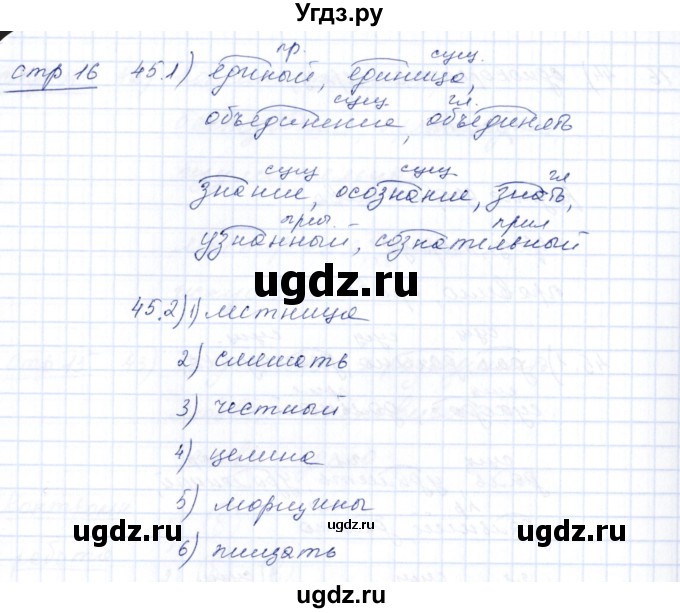 Угдз.ру
пр. сущ.
стр 16 45.1) единый, единица,
сущ гл.
объединение, объединять
сущ сущ гл
знание, осознание, знать,
прил
узнанный, сознательный
ugdz.ru
45.2) 1) лестница
2) слышать
3) честный
ugdz.ru
4) целина
5) морщины
ugdz.ru
ugdz.ru
6) пищать
ugdz.ru